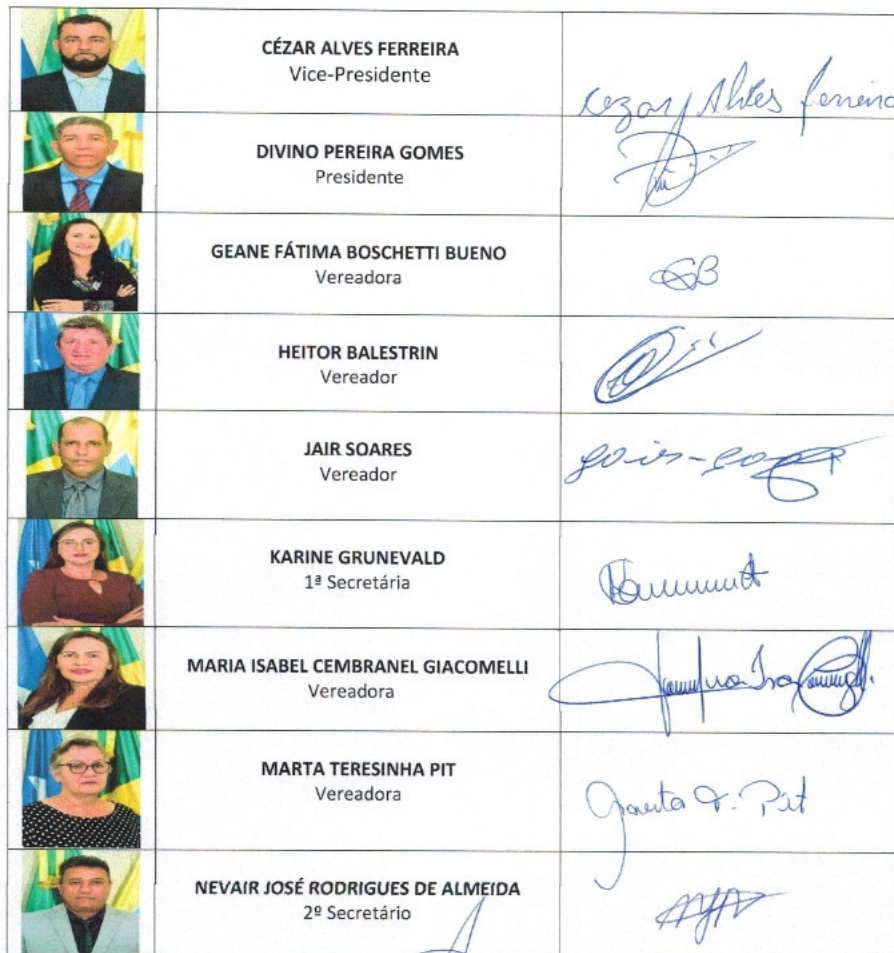 CÉZAR ALVES FERREIRA
Vice-Presidente
Cezar Alves Ferreira
DIVINO PEREIRA GOMES
Presidente
GEANE FÁTIMA BOSCHETTI BUENO
Vereadora
GB
HEITOR BALESTRIN
Vereador
JAIR SOARES
Vereador
KARINE GRUNEVALD
1ª Secretária
MARIA ISABEL CEMBRANEL GIACOMELLI
Vereadora
MARTA TERESINHA PIT
Vereadora
Marta T. Pit
NEVAIR JOSÉ RODRIGUES DE ALMEIDA
2º Secretário